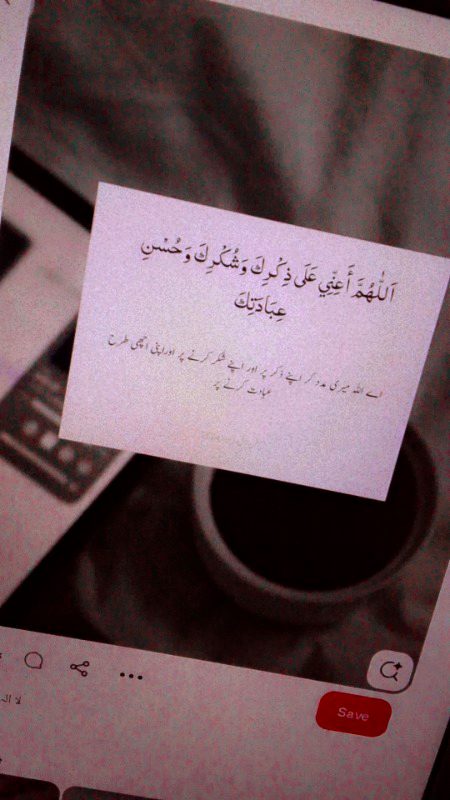 اَللّٰهُمَّ أَعِنِّي عَلَى ذِكْرِكَ وَشُكْرِكَ وَحُسْنِ
عِبَادَتِكَ
اے اللہ میری مدد کر اپنے ذکر پر اور اپنے شکر کرنے پر اور اپنی اچھی طرح
عبادت کرنے پر
Save